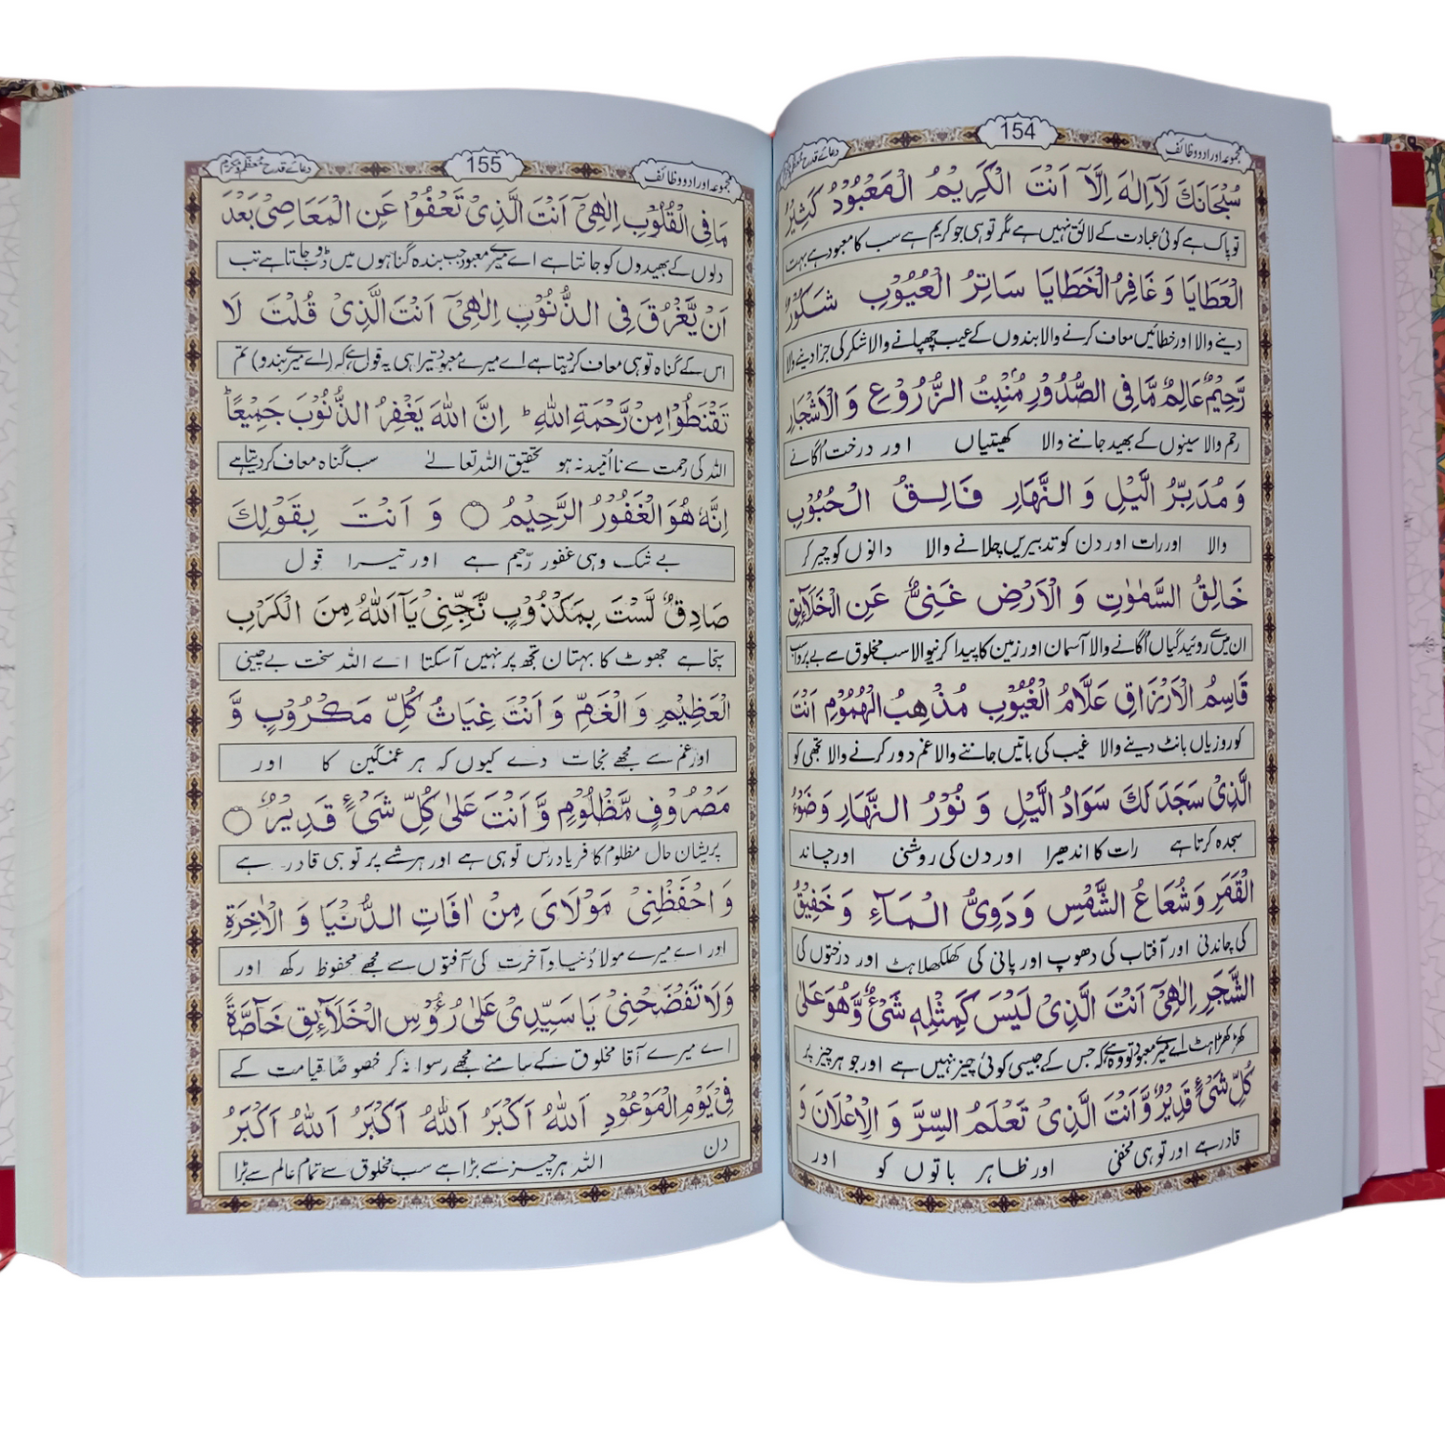 مجموعہ اوراد و وظائف
154
دعائے قدح معظم و مکرم
سُبْحَانَكَ لَآ اِلٰهَ اِلَّآ اَنْتَ الْكَرِيْمُ الْمَعْبُوْدُ كَثِيْرُ
تو پاک ہے کوئی عبادت کے لائق نہیں ہے مگر تو ہی جو کریم ہے سب کا معبود ہے بہت
الْعَطَايَا وَ غَافِرُ الْخَطَايَا سَاتِرُ الْعُيُوْبِ شَكُوْرٌ
دینے والا اور خطائیں معاف کرنے والا بندوں کے عیب چھپانے والا شکر کی جزا دینے والا
رَّحِيْمٌ عَالِمٌ مَّا فِی الصُّدُوْرِ مُنْبِتُ الزُّرُوْعِ وَ الْاَشْجَارِ
رحم والا سینوں کے بھید جاننے والا کھیتیاں اور درخت اُگانے
وَ مُدَبِّرُ الَّيْلِ وَ النَّهَارِ فَالِقُ الْحُبُوْبِ
والا اور رات اور دن کو تدبیریں چلانے والا دانوں کو چیر کر
خَالِقُ السَّمٰوٰتِ وَ الْاَرْضِ غَنِیٌّ عَنِ الْخَلَآئِقِ
ان میں روئیدگیاں اُگانے والا آسمان اور زمین کا پیدا کرنیوالا سب مخلوق سے بے پرواہ
قَاسِمُ الْاَرْزَاقِ عَلَّامُ الْغُيُوْبِ مُذْهِبُ الْهُمُوْمِ اَنْتَ
کو روزیاں بانٹ دینے والا غیب کی باتیں جاننے والا غم دور کرنے والا تجھی کو
الَّذِیْ سَجَدَ لَكَ سَوَادُ الَّيْلِ وَ نُوْرُ النَّهَارِ وَ ضَوْءُ
سجدہ کرتا ہے رات کا اندھیرا اور دن کی روشنی اور چاند
الْقَمَرِ وَ شُعَاعُ الشَّمْسِ وَ دَوِیُّ الْمَآءِ وَ خَفِيْقُ
کی چاندنی اور آفتاب کی دھوپ اور پانی کی کھلکھلاہٹ اور درختوں کی
الشَّجَرِ اِلٰهِیْٓ اَنْتَ الَّذِیْ لَيْسَ كَمِثْلِهٖ شَیْءٌ وَّهُوَ عَلٰی
کھڑکھڑاہٹ اے میرے معبود تو وہ ہے کہ جس کے جیسی کوئی چیز نہیں ہے اور جو ہر چیز پر
كُلِّ شَیْءٍ قَدِيْرٌ وَّ اَنْتَ الَّذِیْ تَعْلَمُ السِّرَّ وَ الْاِعْلَانَ وَ
قادر ہے اور تو ہی مخفی اور ظاہر باتوں کو اور
مجموعہ اوراد و وظائف
155
دعائے قدح معظم و مکرم
مَا فِی الْقُلُوْبِ اِلٰهِیْٓ اَنْتَ الَّذِیْ تَعْفُوْا عَنِ الْمَعَاصِیْ بَعْدَ
دلوں کے بھیدوں کو جانتا ہے اے میرے معبود جب بندہ گناہوں میں ڈوب جاتا ہے تب
اَنْ يَّغْرُقَ فِی الذُّنُوْبِ اِلٰهِیْٓ اَنْتَ الَّذِیْ قُلْتَ لَا
اس کے گناہ تو ہی معاف کردیتا ہے اے میرے معبود تیرا ہی یہ قول ہے کہ (اے میرے بندو) تم
تَقْنَطُوْا مِنْ رَّحْمَةِ اللّٰهِ ؕ اِنَّ اللّٰهَ يَغْفِرُ الذُّنُوْبَ جَمِيْعًا ؕ
اللہ کی رحمت سے نا اُمید نہ ہو تحقیق اللہ تعالےٰ سب گناہ معاف کردیتا ہے
اِنَّهٗ هُوَ الْغَفُوْرُ الرَّحِيْمُ ۝ وَ اَنْتَ بِقَوْلِكَ
بے شک وہی غفور رّحیم ہے اور تیرا قول
صَادِقٌ لَّسْتَ بِمَكْذُوْبٍ نَّجِّنِیْ يَآ اَللّٰهُ مِنَ الْكَرْبِ
سچا ہے جھوٹ کا بہتان تجھ پر نہیں آسکتا اے اللہ سخت بے چینی
الْعَظِيْمِ وَ الْغَمِّ وَ اَنْتَ غِيَاثُ كُلِّ مَكْرُوْبٍ وَّ
اور غم سے مجھے نجات دے کیوں کہ ہر غمگین کا اور
مَصْرُوْفٍ مَّظْلُوْمٍ وَّ اَنْتَ عَلٰی كُلِّ شَیْءٍ قَدِيْرٌ ۝
پریشان حال مظلوم کا فریاد رس تو ہی ہے اور ہر شے پر تو ہی قادر ہے
وَ احْفَظْنِیْ مَوْلَایَ مِنْ اٰفَاتِ الدُّنْيَا وَ الْاٰخِرَةِ
اور اے میرے مولا دُنیا و آخرت کی آفتوں سے مجھے محفوظ رکھ اور
وَلَا تَفْضَحْنِیْ يَا سَيِّدِیْ عَلٰی رُؤُسِ الْخَلَآئِقِ خَآصَّةً
اے میرے آقا مخلوق کے سامنے مجھے رسوا نہ کر خصوصًا قیامت کے
فِیْ يَوْمِ الْمَوْعُوْدِ اَللّٰهُ اَكْبَرُ اَللّٰهُ اَكْبَرُ اَللّٰهُ اَكْبَرُ
دن اللہ ہر چیز سے بڑا ہے سب مخلوق سے تمام عالم سے بڑا